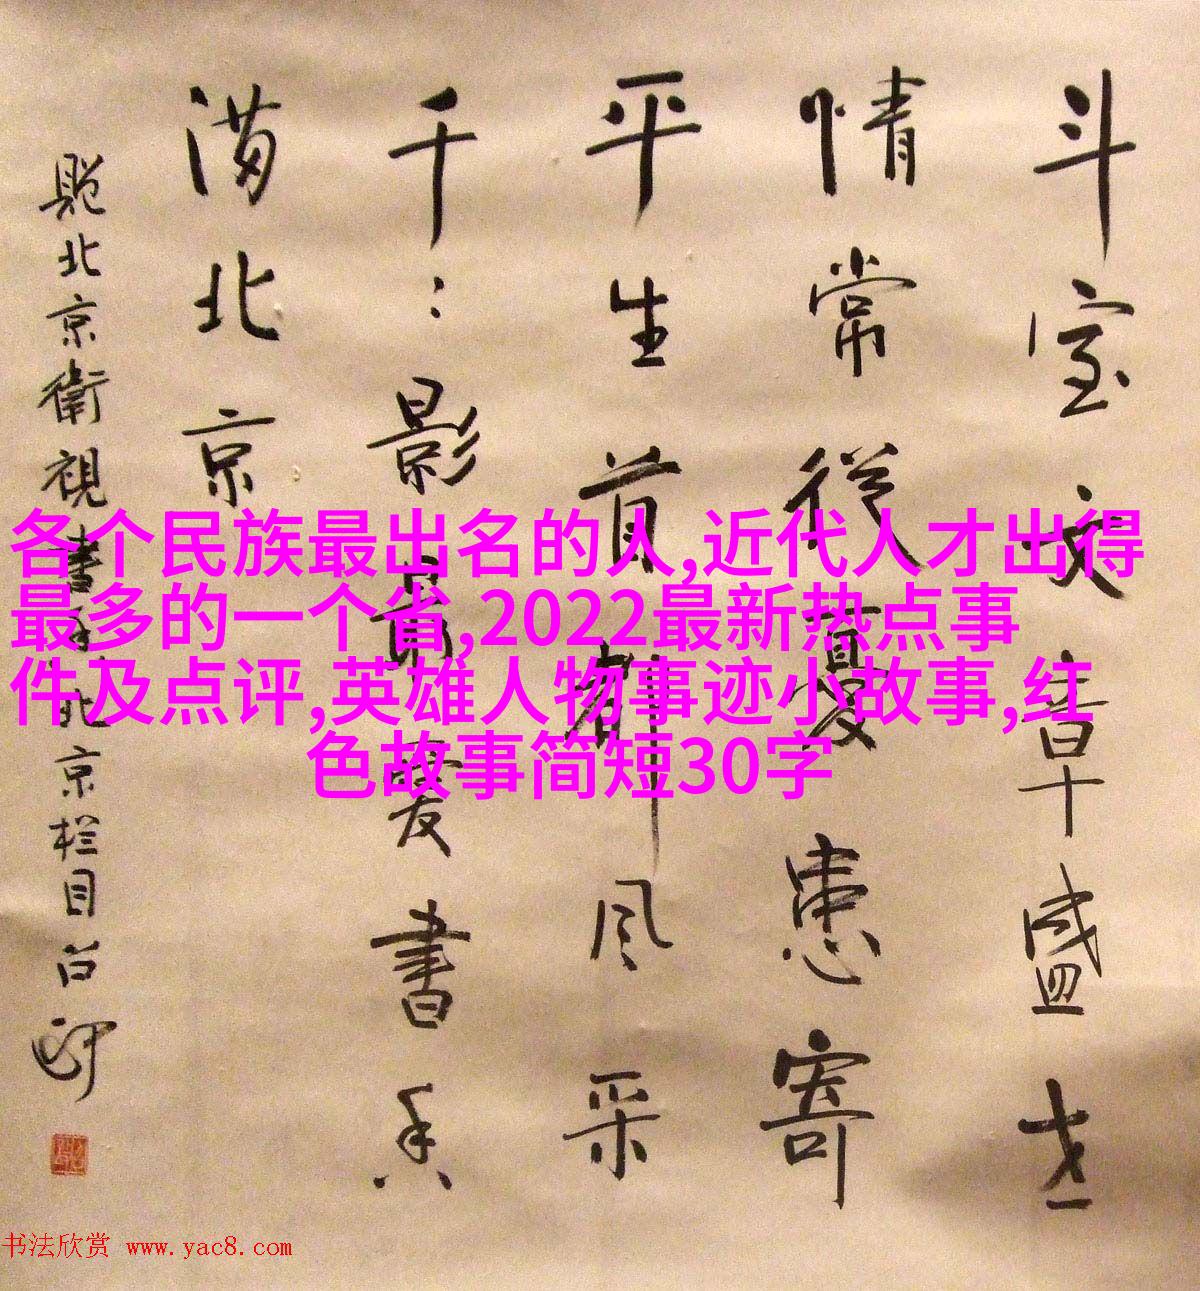 斗室文章盛世
情常從憂患寄
平生首都風采
千:影最愛書香
满北京
題北京衛視書香北京栏目
各个民族最出名的人,近代人才出得
最多的一个省,2022最新热点事
件及点评,英雄人物事迹小故事,红
色故事简短30字
书法欣赏 www.yac8.com